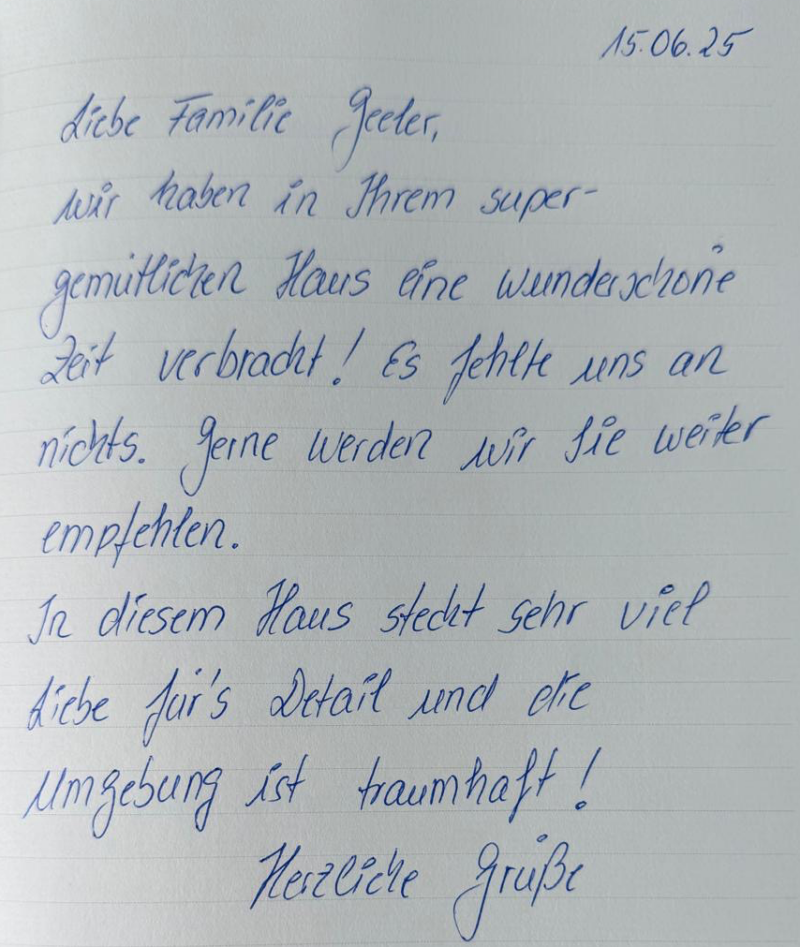 15.06.25
Liebe Familie Geeter,
wir haben in Ihrem super-
gemütlichen Haus eine wunderschöne
Zeit verbracht! Es fehlte uns an
nichts. Gerne werden wir Sie weiter
empfehlen.
In diesem Haus steckt sehr viel
Liebe für's Detail und die
Umgebung ist traumhaft!
Herzliche Grüße